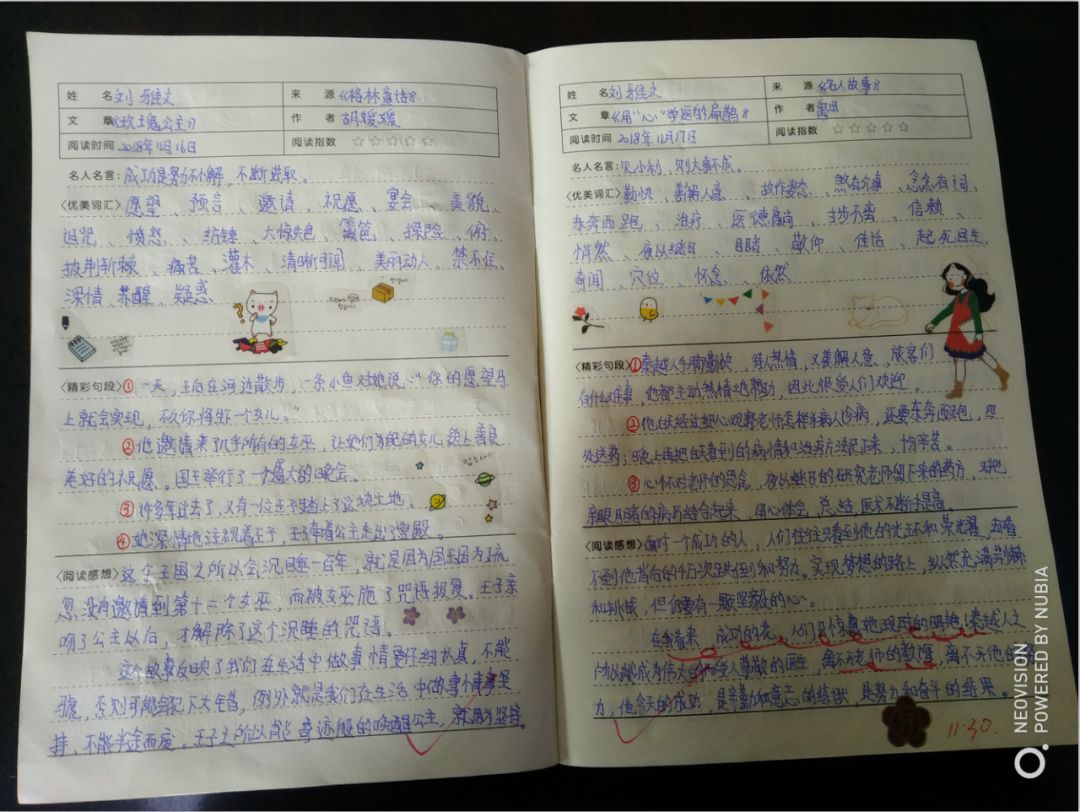 姓 名 刘雅文 来 源 《格林童话》
文 章 《玫瑰公主》 作 者 胡媛媛
阅读时间 2018年11月16日 阅读指数 ☆☆☆☆☆
名人名言：成功是努力不懈，不断进取。
〈优美词汇〉愿望、预言、邀请、祝愿、宴会、美貌、
诅咒、愤怒、纺锤、大惊失色、篱笆、探险、
披荆斩棘、痛苦、灌木、清晰可闻、美丽动人、禁不住、
深情、苏醒、疑惑
〈精彩句段〉①一天，王后在河边散步，一条小鱼对她说："你的愿望马
上就会实现，不久你将生一个女儿。"
②他邀请来了几乎所有的女巫，让她们为他的女儿送上善良
美好的祝愿。国王举行了一个盛大的晚会。
③许多年过去了，又有一位王子踏上了这块土地。
④她深情地注视着王子，王子牵着公主走出了宫殿。
〈阅读感想〉这个王国之所以会沉睡一百年，就是因为国王因为疏
忽没有邀请到第十三个女巫，而被女巫施了咒语报复。王子亲
吻了公主以后，才解除了这个沉睡的咒语。
这个故事反映了我们在生活中做事情要仔细认真，不能
否则可能会犯下大错，例外就是我们在生活中做事情要坚
持，不能半途而废。王子之所以能奇迹般的唤醒公主，就因为坚持。
姓 名 刘雅文 来 源 《名人故事》
文 章 《用"心"学医的扁鹊》 作 者
阅读时间 2018年11月17日 阅读指数 ☆☆☆☆☆
名人名言：见小利，则大事不成。
〈优美词汇〉勤快、善解人意、故作姿态、煞有介事、念念有词、
东奔西跑、治疗、医德高尚、寸步不离、信赖、
悄然、夜以继日、目睹、敬仰、佳话、起死回生、
奇闻、穴位、怀念、依然
〈精彩句段〉①秦越人手脚勤快，待人热情，又善解人意，旅客们
有什么难事，他都主动热情地帮助，因此很受人们欢迎。
②他白天经过细心观察老师怎样给病人诊病，还要东奔西跑，
处送药；晚上再把白天看到的病情和治疗方法记下来，十分辛苦。
③心怀对老师的思念，夜以继日的研究老师留下来的药方，又把
亲眼目睹的病历结合起来，用心体会，总结，医术不断提高。
〈阅读感想〉面对一个成功的人，人们往往只看到他的光环和荣光耀，却看
不到他背后的千万次跌倒和努力。实现梦想的路上，纵然充满荆棘
和挑战，但你要有一颗坚毅的心。
在我看来，成功的花，人们只惊羡她现时的明艳！秦越人之
所以能成为伟大的而受人尊敬的医生，离不开老师的教诲，离不开他的努
力，他今天的成功，是辛勤和意志的练就，是努力和奋斗的结果。
11.30.
NEOVISION
POWERED BY NUBIA